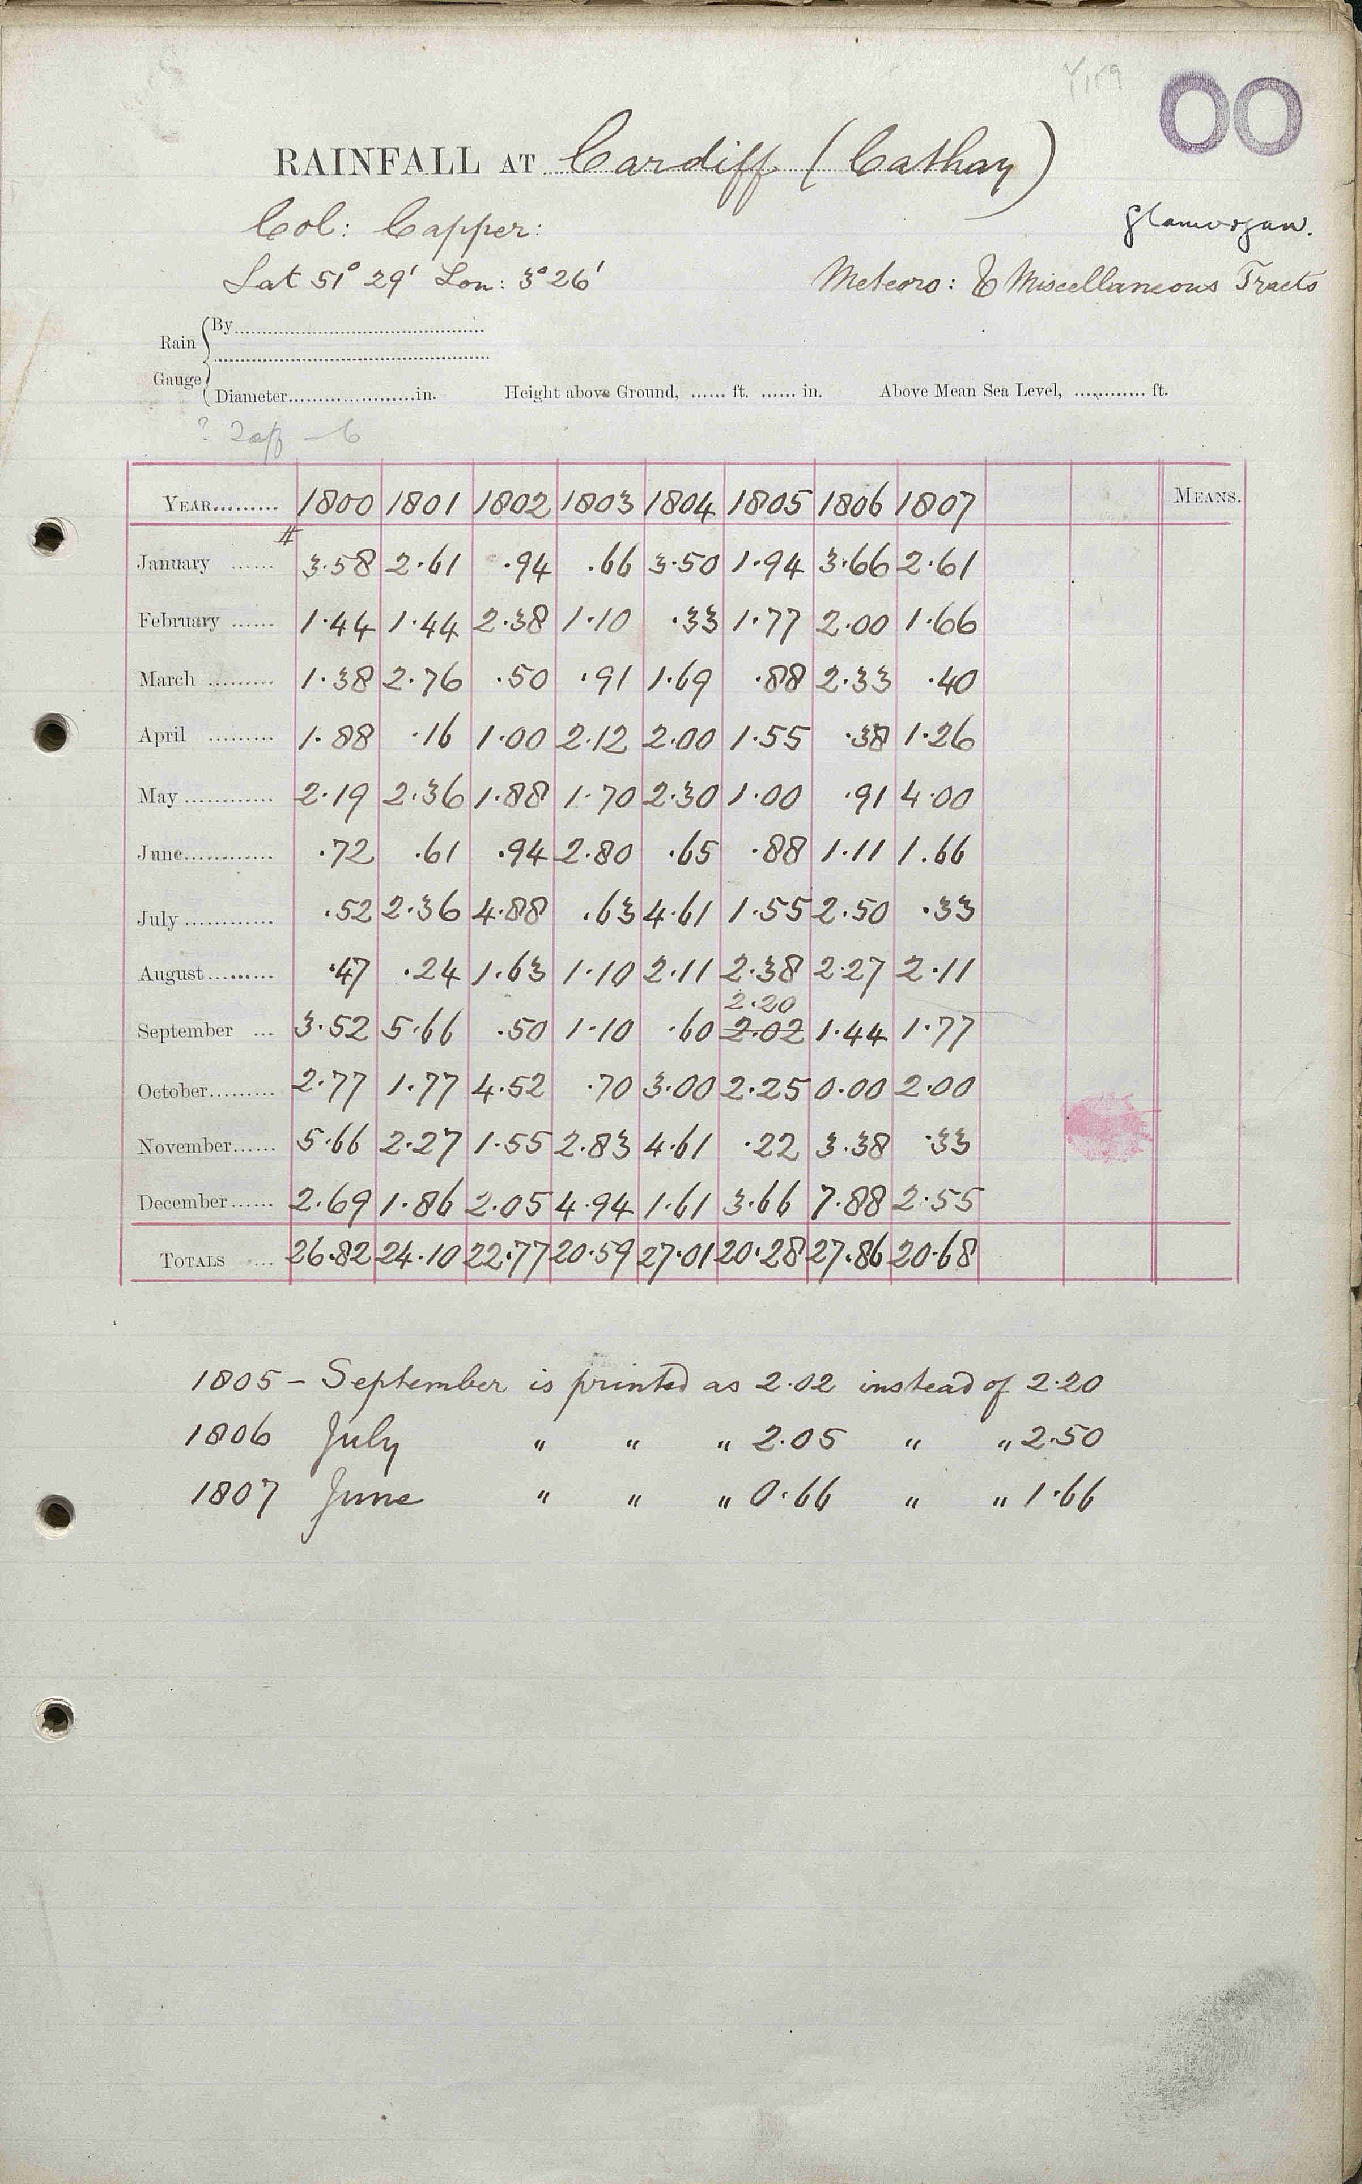 Y159
00
RAINFALL AT Cardiff (Cathay)
Col: Capper:
Glamorgan.
Lat 51° 29' Lon: 3° 26'
Meteoro: & Miscellaneous Tracts
Rain Gauge
By
Diameter in. Height above Ground, ft. in. Above Mean Sea Level, ft.
YEAR 1800 1801 1802 1803 1804 1805 1806 1807 MEANS.
January 3.58 2.61 .94 .66 3.50 1.94 3.66 2.61
February 1.44 1.44 2.38 1.10 .33 1.77 2.00 1.66
March 1.38 2.76 .50 .91 1.69 .88 2.33 .40
April 1.88 .16 1.00 2.12 2.00 1.55 .38 1.26
May 2.19 2.36 1.88 1.70 2.30 1.00 .91 4.00
June .72 .61 .94 2.80 .65 .88 1.11 1.66
July .52 2.36 4.88 .63 4.61 1.55 2.50 .33
August .47 .24 1.63 1.10 2.11 2.38 2.27 2.11
2.20
September 3.52 5.66 .50 1.10 .60 2.02 1.44 1.77
October 2.77 1.77 4.52 .70 3.00 2.25 0.00 2.00
November 5.66 2.27 1.55 2.83 4.61 .22 3.38 .33
December 2.69 1.86 2.05 4.94 1.61 3.66 7.88 2.55
TOTALS 26.82 24.10 22.77 20.59 27.01 20.28 27.86 20.68
1805 - September is printed as 2.02 instead of 2.20
1806 July " " " 2.05 " " 2.50
1807 June " " " 0.66 " " 1.66